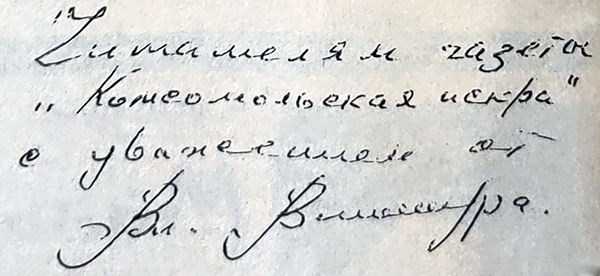 Читателям газеты
„Комсомольская искра"
с уважением от
Вл.